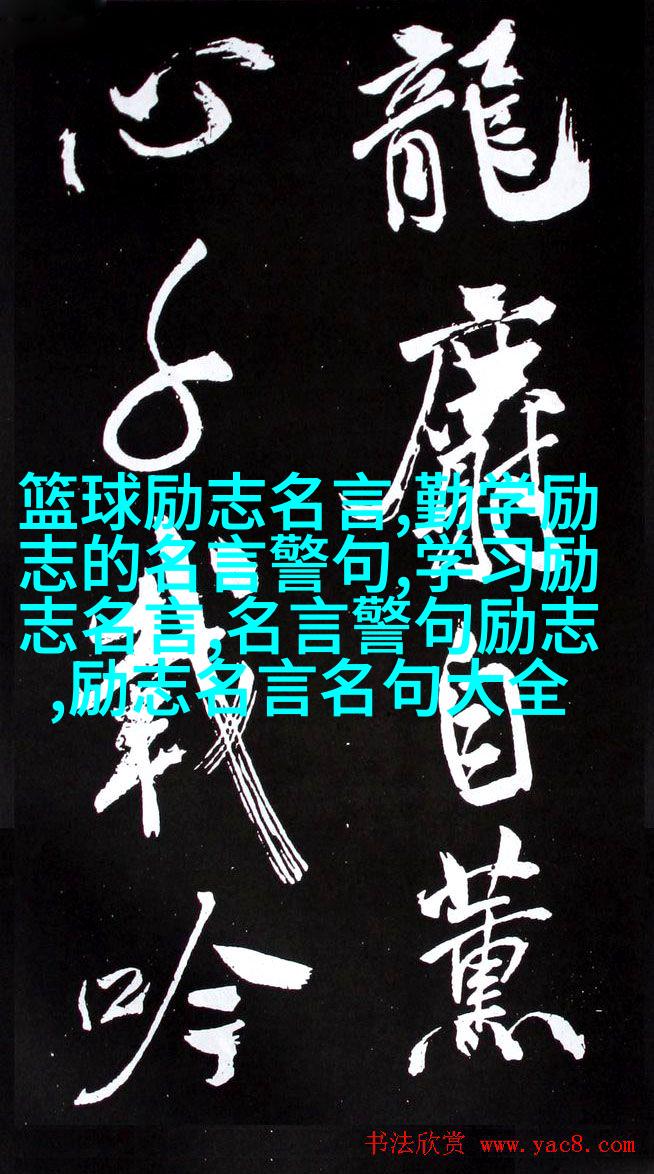 龍自薰
心千載吟
篮球励志名言,勤学励
志的名言警句,学习励
志名言,名言警句励志
,励志名言名句大全
书法欣赏 www.yac8.com